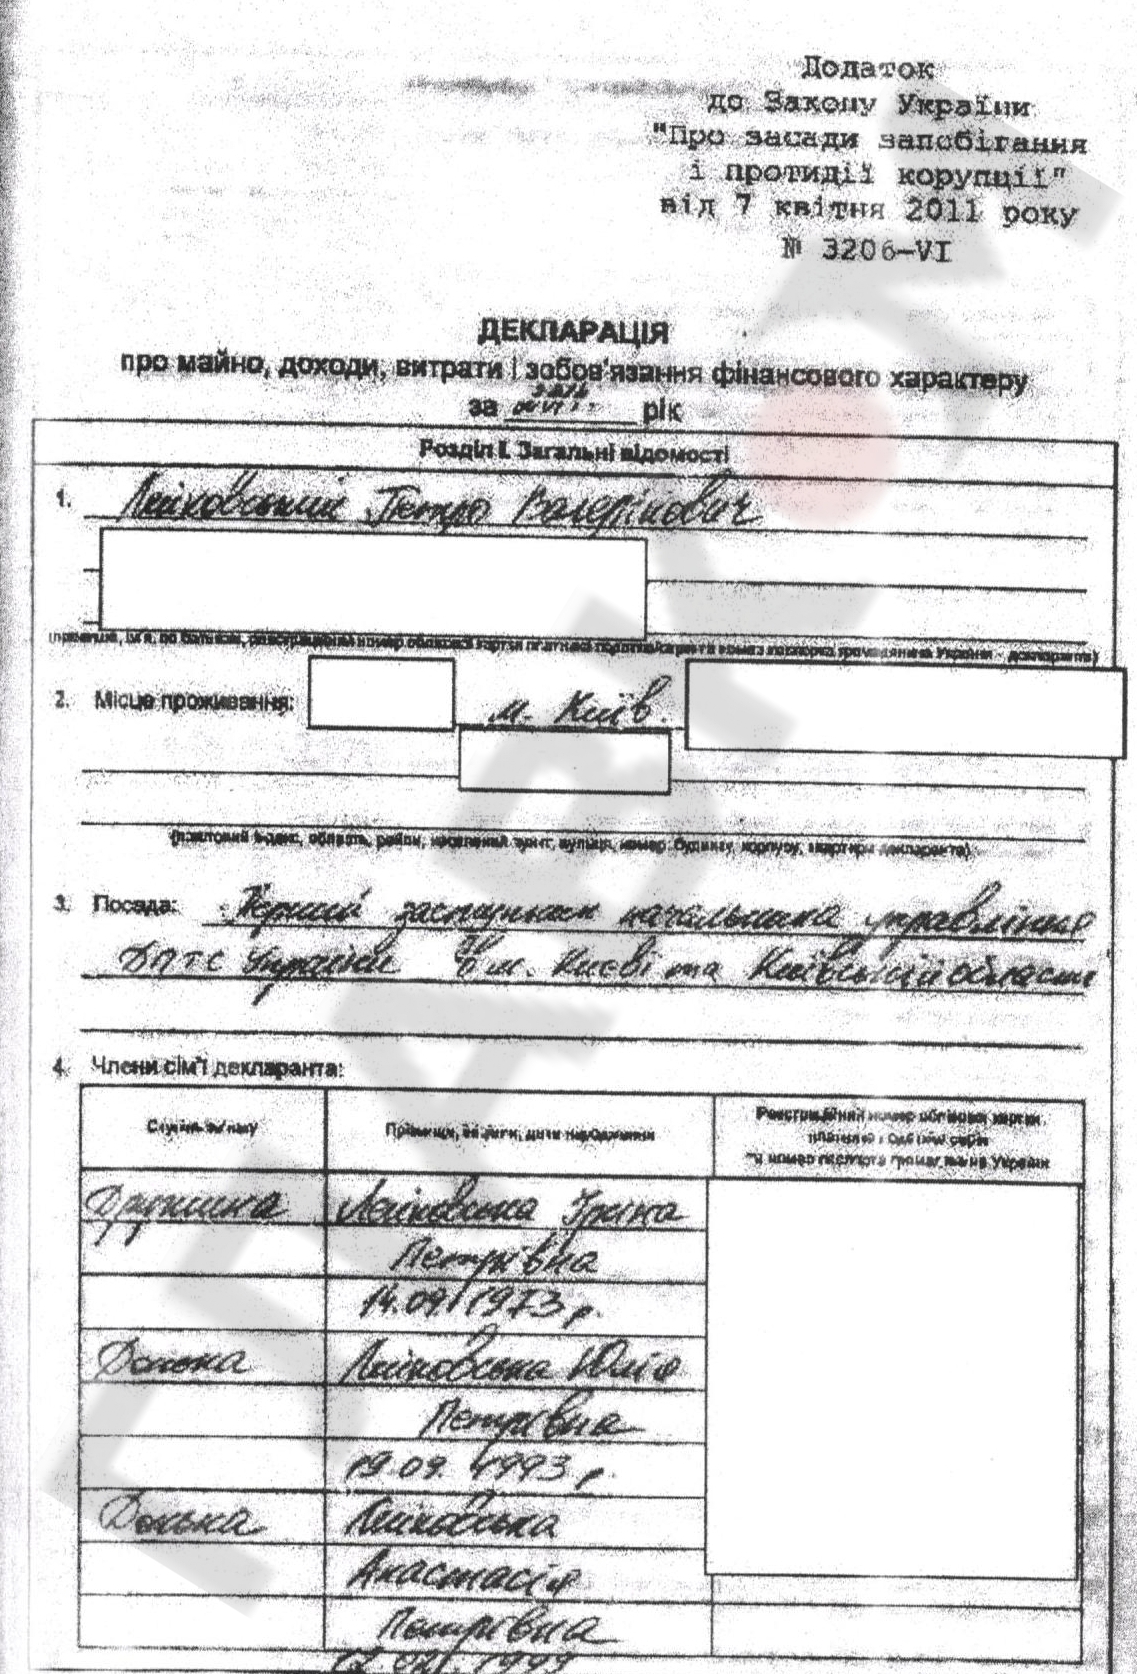 Додаток
до Закону України
"Про засади запобігання
і протидії корупції"
від 7 квітня 2011 року
№ 3206-VI
ДЕКЛАРАЦІЯ
про майно, доходи, витрати і зобов'язання фінансового характеру
за рік
Розділ I. Загальні відомості
1. Петро Валерійович
(прізвище, ім'я, по батькові, реєстраційний номер облікової картки платника податків/серія та номер паспорта громадянина України - декларанта)
2. Місце проживання: м. Київ.
(поштовий індекс, область, район, населений пункт, вулиця, номер: будинку, корпусу, квартири декларанта)
3. Посада: Перший заступник начальника управління
ДПтС України в м. Києві та Київській області
4. Члени сім'ї декларанта:
Ступінь зв'язку
Прізвище, ініціали, дата народження
Реєстраційний номер облікової картки
платника податків/серія
та номер паспорта громадянина України
Дружина Ірина
Петрівна
14.09.1973 р.
Донька Юлія
Петрівна
19.09.1993 р.
Донька
Анастасія
Петрівна